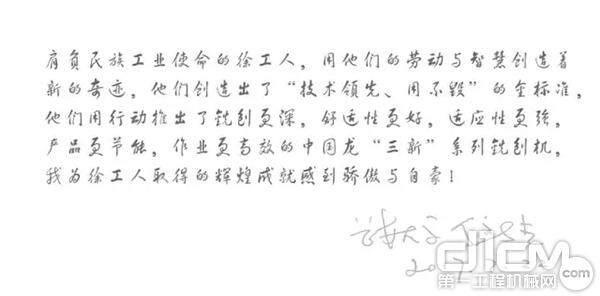 肩负民族工业使命的徐工人，用他们的劳动与智慧创造着
新的奇迹，他们创造出了“技术领先、用不毁”的金标准，
他们用行动推出了铣刨更深，舒适性更好，适应性更强，
产品更节能，作业更高效的中国龙“三新”系列铣刨机，
我为徐工人取得的辉煌成就感到骄傲与自豪！
CICM.com
第一工程机械网